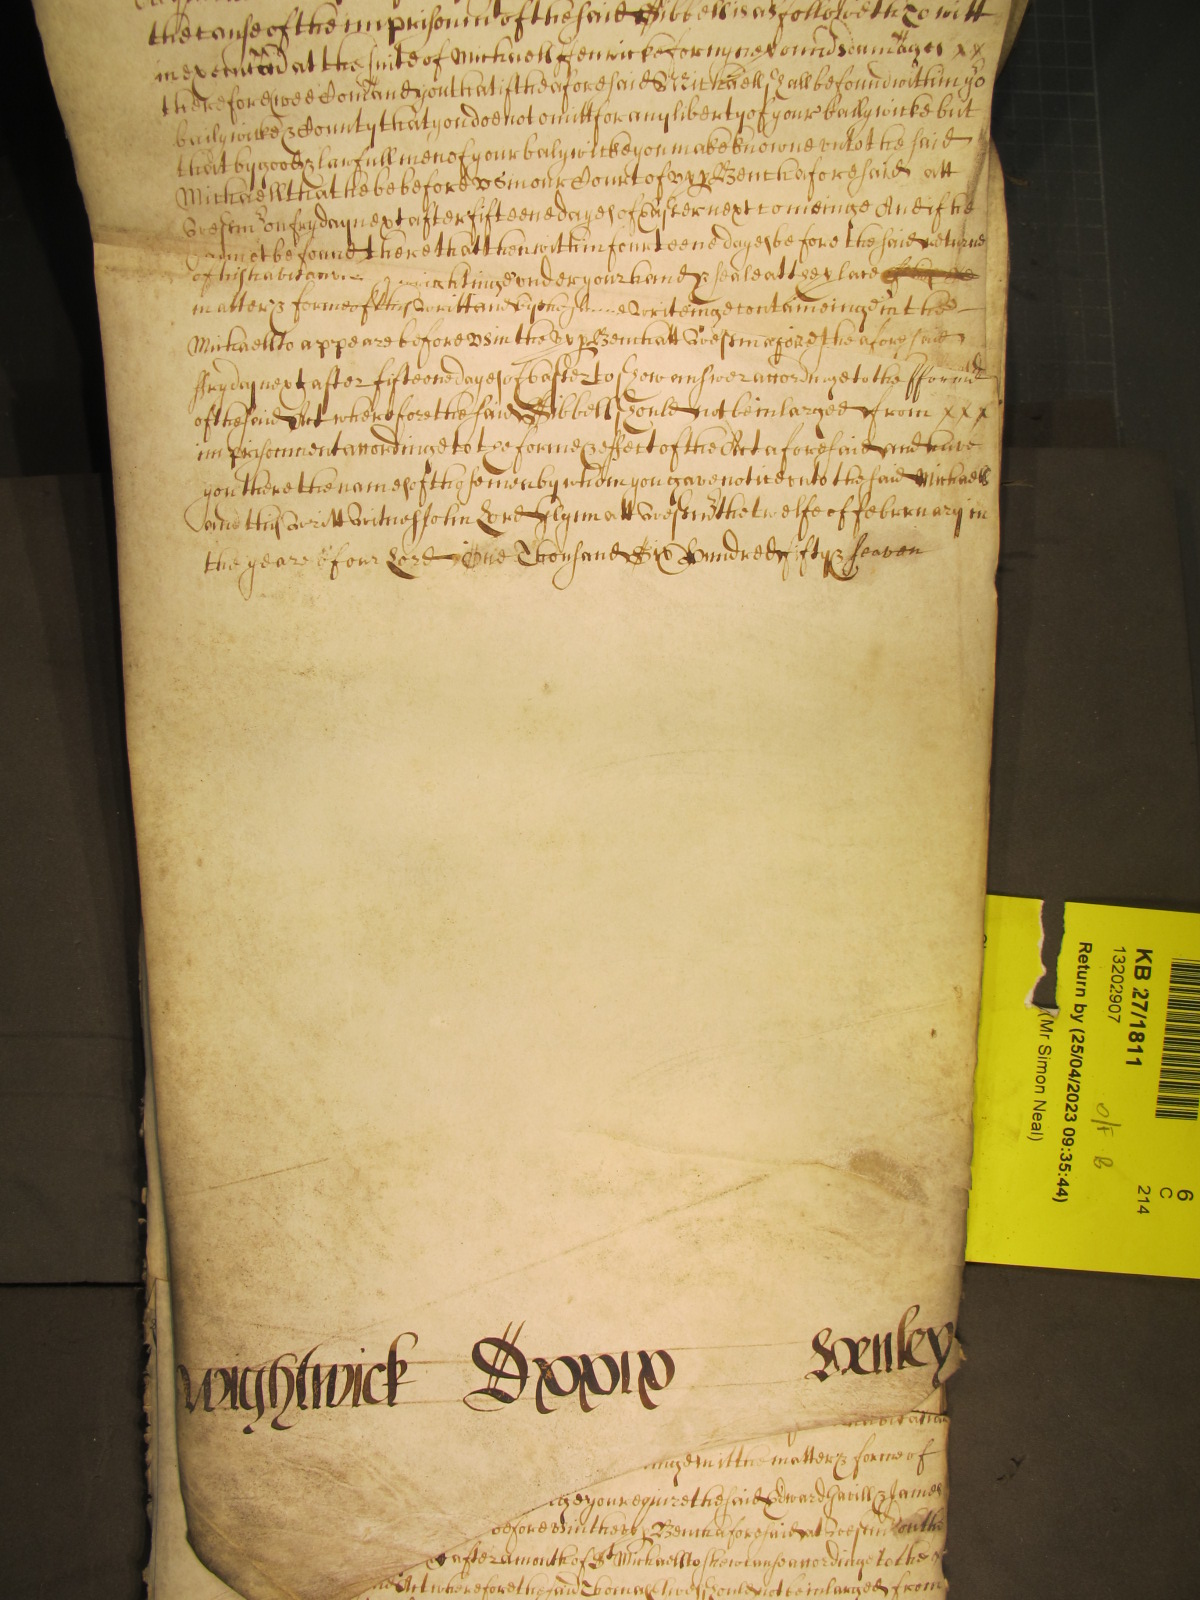 the cause of the imprisonmt of the said Gibbell is as followeth To witt
in execucõn at the suite of Michaell Fenwicke for nyne pounds damages xx
therefore wee Comand you that if the aforesaid Michaell shall be found within yo
bailywicke & County that you doe not omitt for any liberty of your bailywicke but
that by good & lawfull men of your balywicke you make knowne unto the said
Michaell that he be before us in our Court of upp Bench aforesaid att
Westm on fryday next after fifteene dayes of Easter next comeinge And if he
cannot be found there that then within fourteene dayes before the said returne
of his habitacon writeinge under your hand & seale att ye place
matter & forme of this writt and by the same writeinge containeinge in the
Michaell to appeare before us in the upp Bench att Westm aforesd the aforesaid
ffryday next after fifteene dayes of Easter to shew answer accordinge to the fforme
of the said Act wherefore the said Gibbell should not be inlarged from xxx
imprisonment accordinge to the forme & effect of the Act aforesaid and have
you there the names of those men by whom you gave notice unto the said Michaell
and this writt Witnes John Lord Glynn att Westm the twelfe of february in
the yeare of our Lord One Thousand Six Hundred fifty & seaven
KB 27/1811
13202907
Return by (25/04/2023 09:35:44)
(Mr Simon Neal)
O/F B
6
C
214
Wightwick Dxxix Henley
inge in itt the matter & forme of
you require the said Edward Savill & James
before us in the upp Bench aforesaid at Westm on the
after a month of St Michaell to shew cause accordinge to the
Act wherefore the said Thomas should not be inlarged from